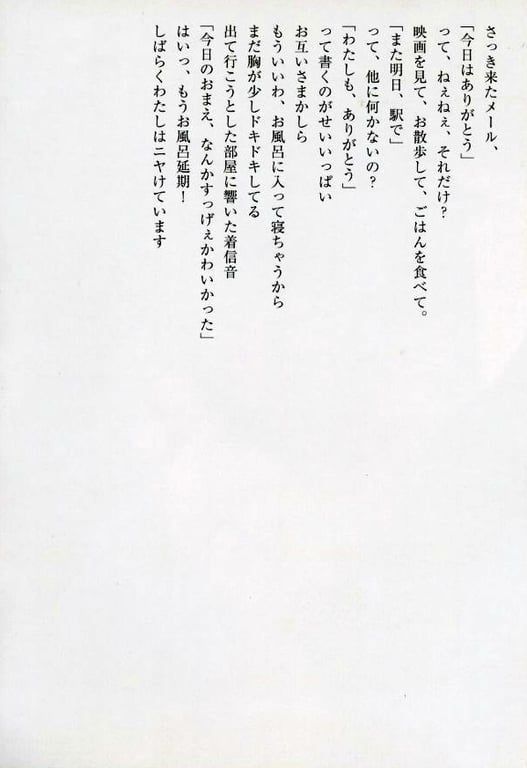 さっき来たメール、
「今日はありがとう」
って、ねぇねぇ、それだけ？
映画を見て、お散歩して、ごはんを食べて。
「また明日、駅で」
って、他に何かないの？
「わたしも、ありがとう」
って書くのがせいいっぱい
お互いさまかしら
もういいわ、お風呂に入って寝ちゃうから
まだ胸が少しドキドキしてる
出て行こうとした部屋に響いた着信音
「今日のおまえ、なんかすっげぇかわいかった」
はいっ、もうお風呂延期！
しばらくわたしはニヤけています